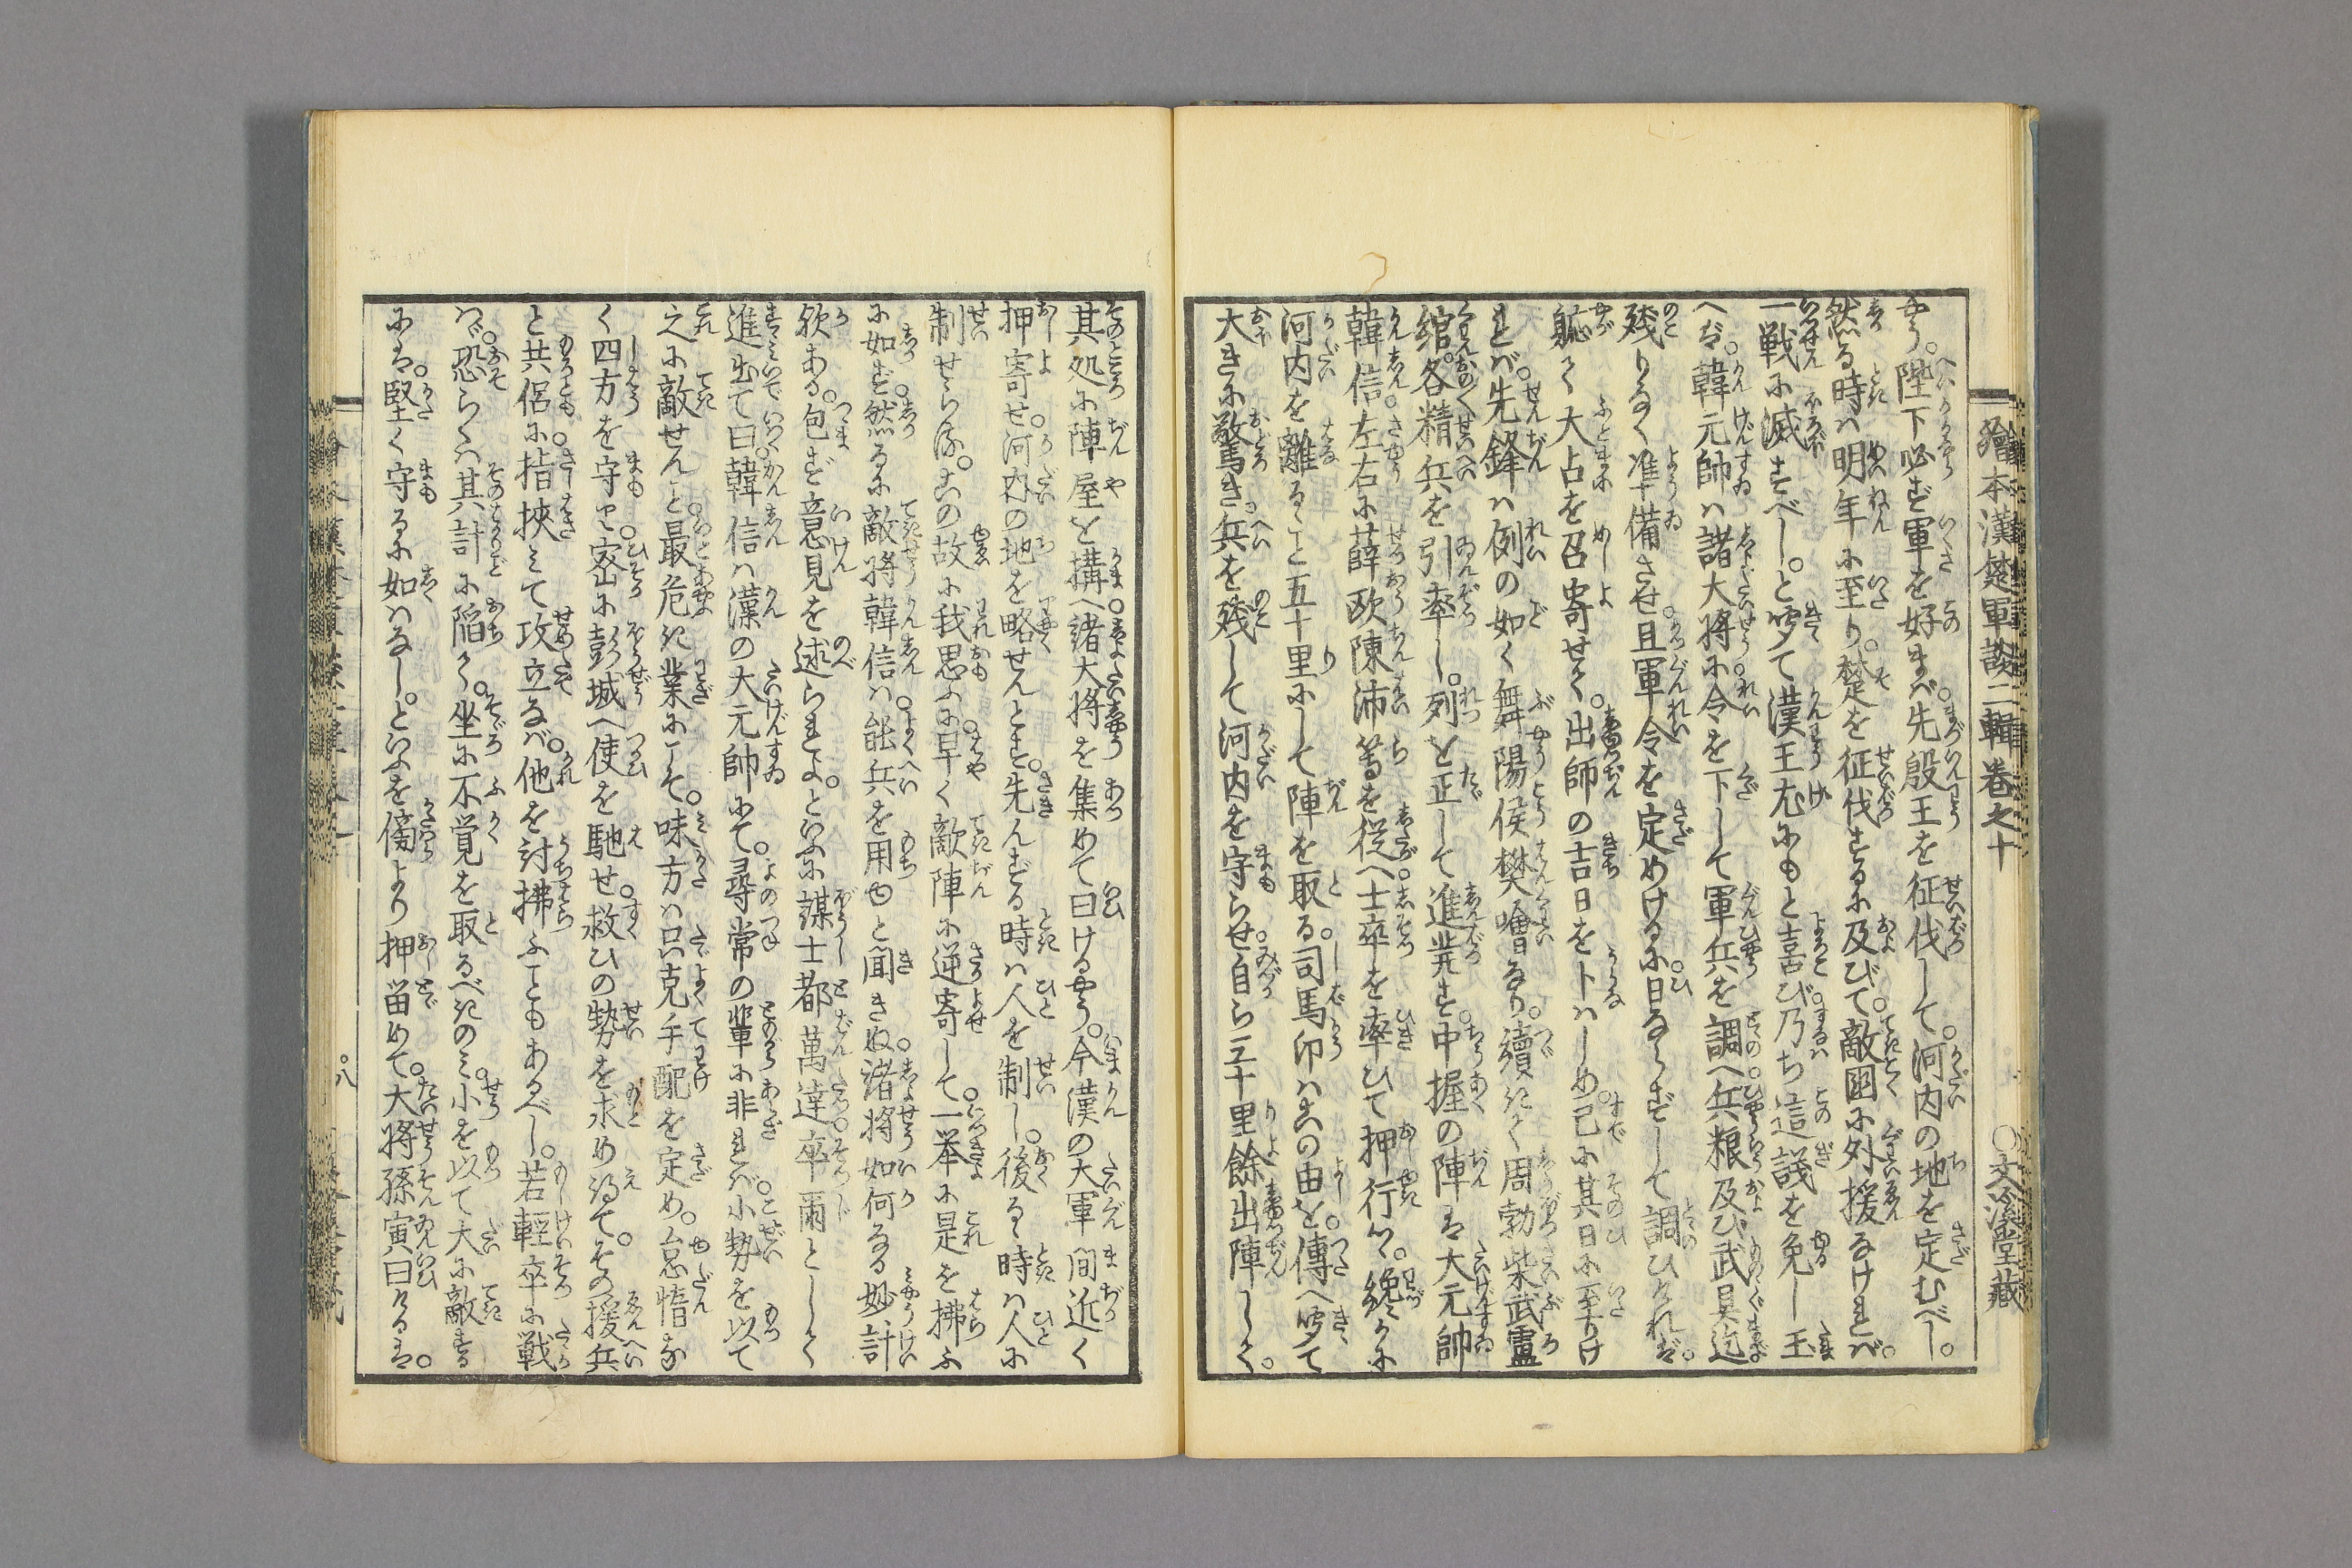 繪本漢楚軍談二輯卷之十　○文溪堂藏
やう。陛下必ず軍を好まべ先殷王を征伐して。河内の地を定むべし。
然る時ハ明年に至り。楚を征伐するに及びて。敵国に外援なけれバ。
一戦に滅すべし。と聞て漢王尤にもと喜び乃ち這議を免し玉
へば。韓元帥ハ諸大将に令を下して軍兵を調へ兵粮及び武具迄
残りなく準備させ。且軍令を定めけるに。日ならずして調ひければ。
軈て大占を召寄せて。出師の吉日を卜ハしめ。已に其日に至りけ
れバ。先鋒ハ例の如く舞陽侯樊噲なり。續きて周勃柴武盧
綰。各精兵を引率し。列を正して進発す。中握の陣は大元帥
韓信左右に薛欧陳沛等を従へ。士卒を率ひて押行く。纔かに
河内を離るゝこと五十里にして陣を取る。司馬卬ハこの由を。傳へ聞て
大きに驚き。兵を残して河内を守らせ。自ら三十里餘出陣して。
其処に陣屋を構へ。諸大将を集めて曰けるやう。今漢の大軍間近く
押寄せ。河内の地を略せんとす。先んずる時ハ人を制し。後るゝ時ハ人に
制せらる。この故に我思ふに。早く敵陣に逆寄して。一挙に是を拂ふ
に如ず。然るに敵将韓信ハ。能兵を用ゆと聞きぬ。諸将如何なる妙計
歟ある。包ず意見を述られよ。といふに謀士都萬達。卒爾としして
進出て曰。韓信ハ漢の大元帥にて。尋常の輩に非れバ。小勢を以て
之に敵せんこと。最危き業にこそ。味方ハ只克手配を定め。怠惰な
く四方を守り。密に彭城へ使を馳せ。救ひの勢を求め得て。その援兵
と共侶に。指挾ミて攻立なバ。他を討拂ふこともあるべし。若輕卒に戦
ハゞ。恐らくハ其計に陥りて。坐に不覚を取るべきのミ。小を以て大に敵する
にハ。堅く守るに如ハなし。といふを傍より押留めて。大将孫寅曰けるは。
八